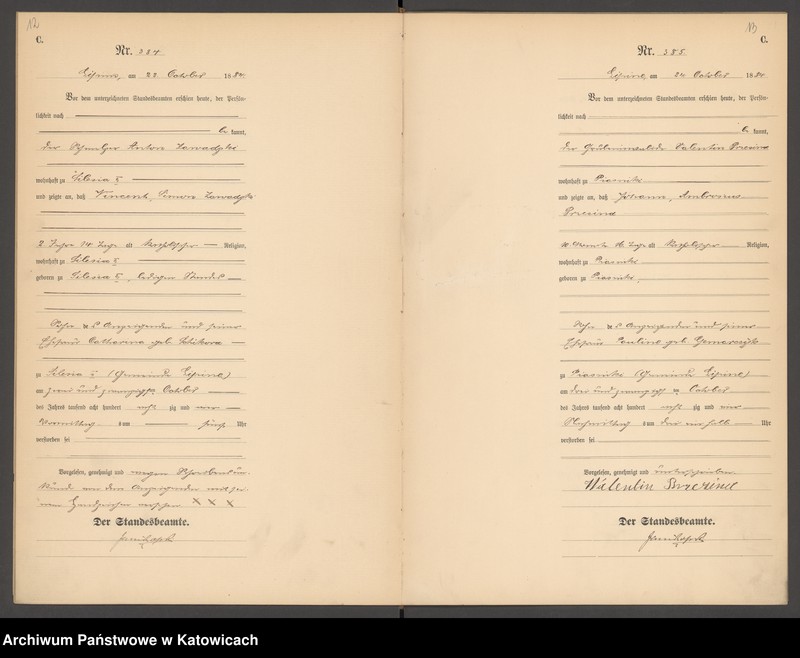 12
C.
Nr. 384
Lipine, am 22 October 1884
Vor dem unterzeichneten Standesbeamten erschien heute, der Persön-
lichkeit nach
kannt,
der Anton Zawadzki
wohnhaft zu Silesia
und zeigte an, daß Vincent, Simon Zawadzki
2 Jahre 14 Tage alt katholischer Religion,
wohnhaft zu Silesia
geboren zu Silesia, ledigen Standes
Sohn des Anzeigenden und seiner
Ehefrau Catharina geb.
zu Silesia (Gemeinde Lipine)
am zwei und zwanzigsten October
des Jahres tausend acht hundert acht zig und vier
Vormittag um fünf Uhr
verstorben sei
Vorgelesen, genehmigt und wegen Schreibensun-
kunde von dem Anzeigenden mit sei-
nem Handzeichen versehen X X X
Der Standesbeamte.
13
C.
Nr. 385
Lipine, am 24 October 1884
Vor dem unterzeichneten Standesbeamten erschien heute, der Persön-
lichkeit nach
kannt,
der Valentin
wohnhaft zu Piasniki
und zeigte an, daß Johann, Ambrosius
alt katholischer Religion,
wohnhaft zu Piasniki
geboren zu Piasniki,
Sohn des Anzeigenden und seiner
Ehefrau Pauline geb.
zu Piasniki (Gemeinde Lipine)
am drei und zwanzigsten October
des Jahres tausend acht hundert acht zig und vier
Nachmittag um drei ein halb Uhr
verstorben sei
Vorgelesen, genehmigt und unterschrieben
Walentin
Der Standesbeamte.
Archiwum Państwowe w Katowicach